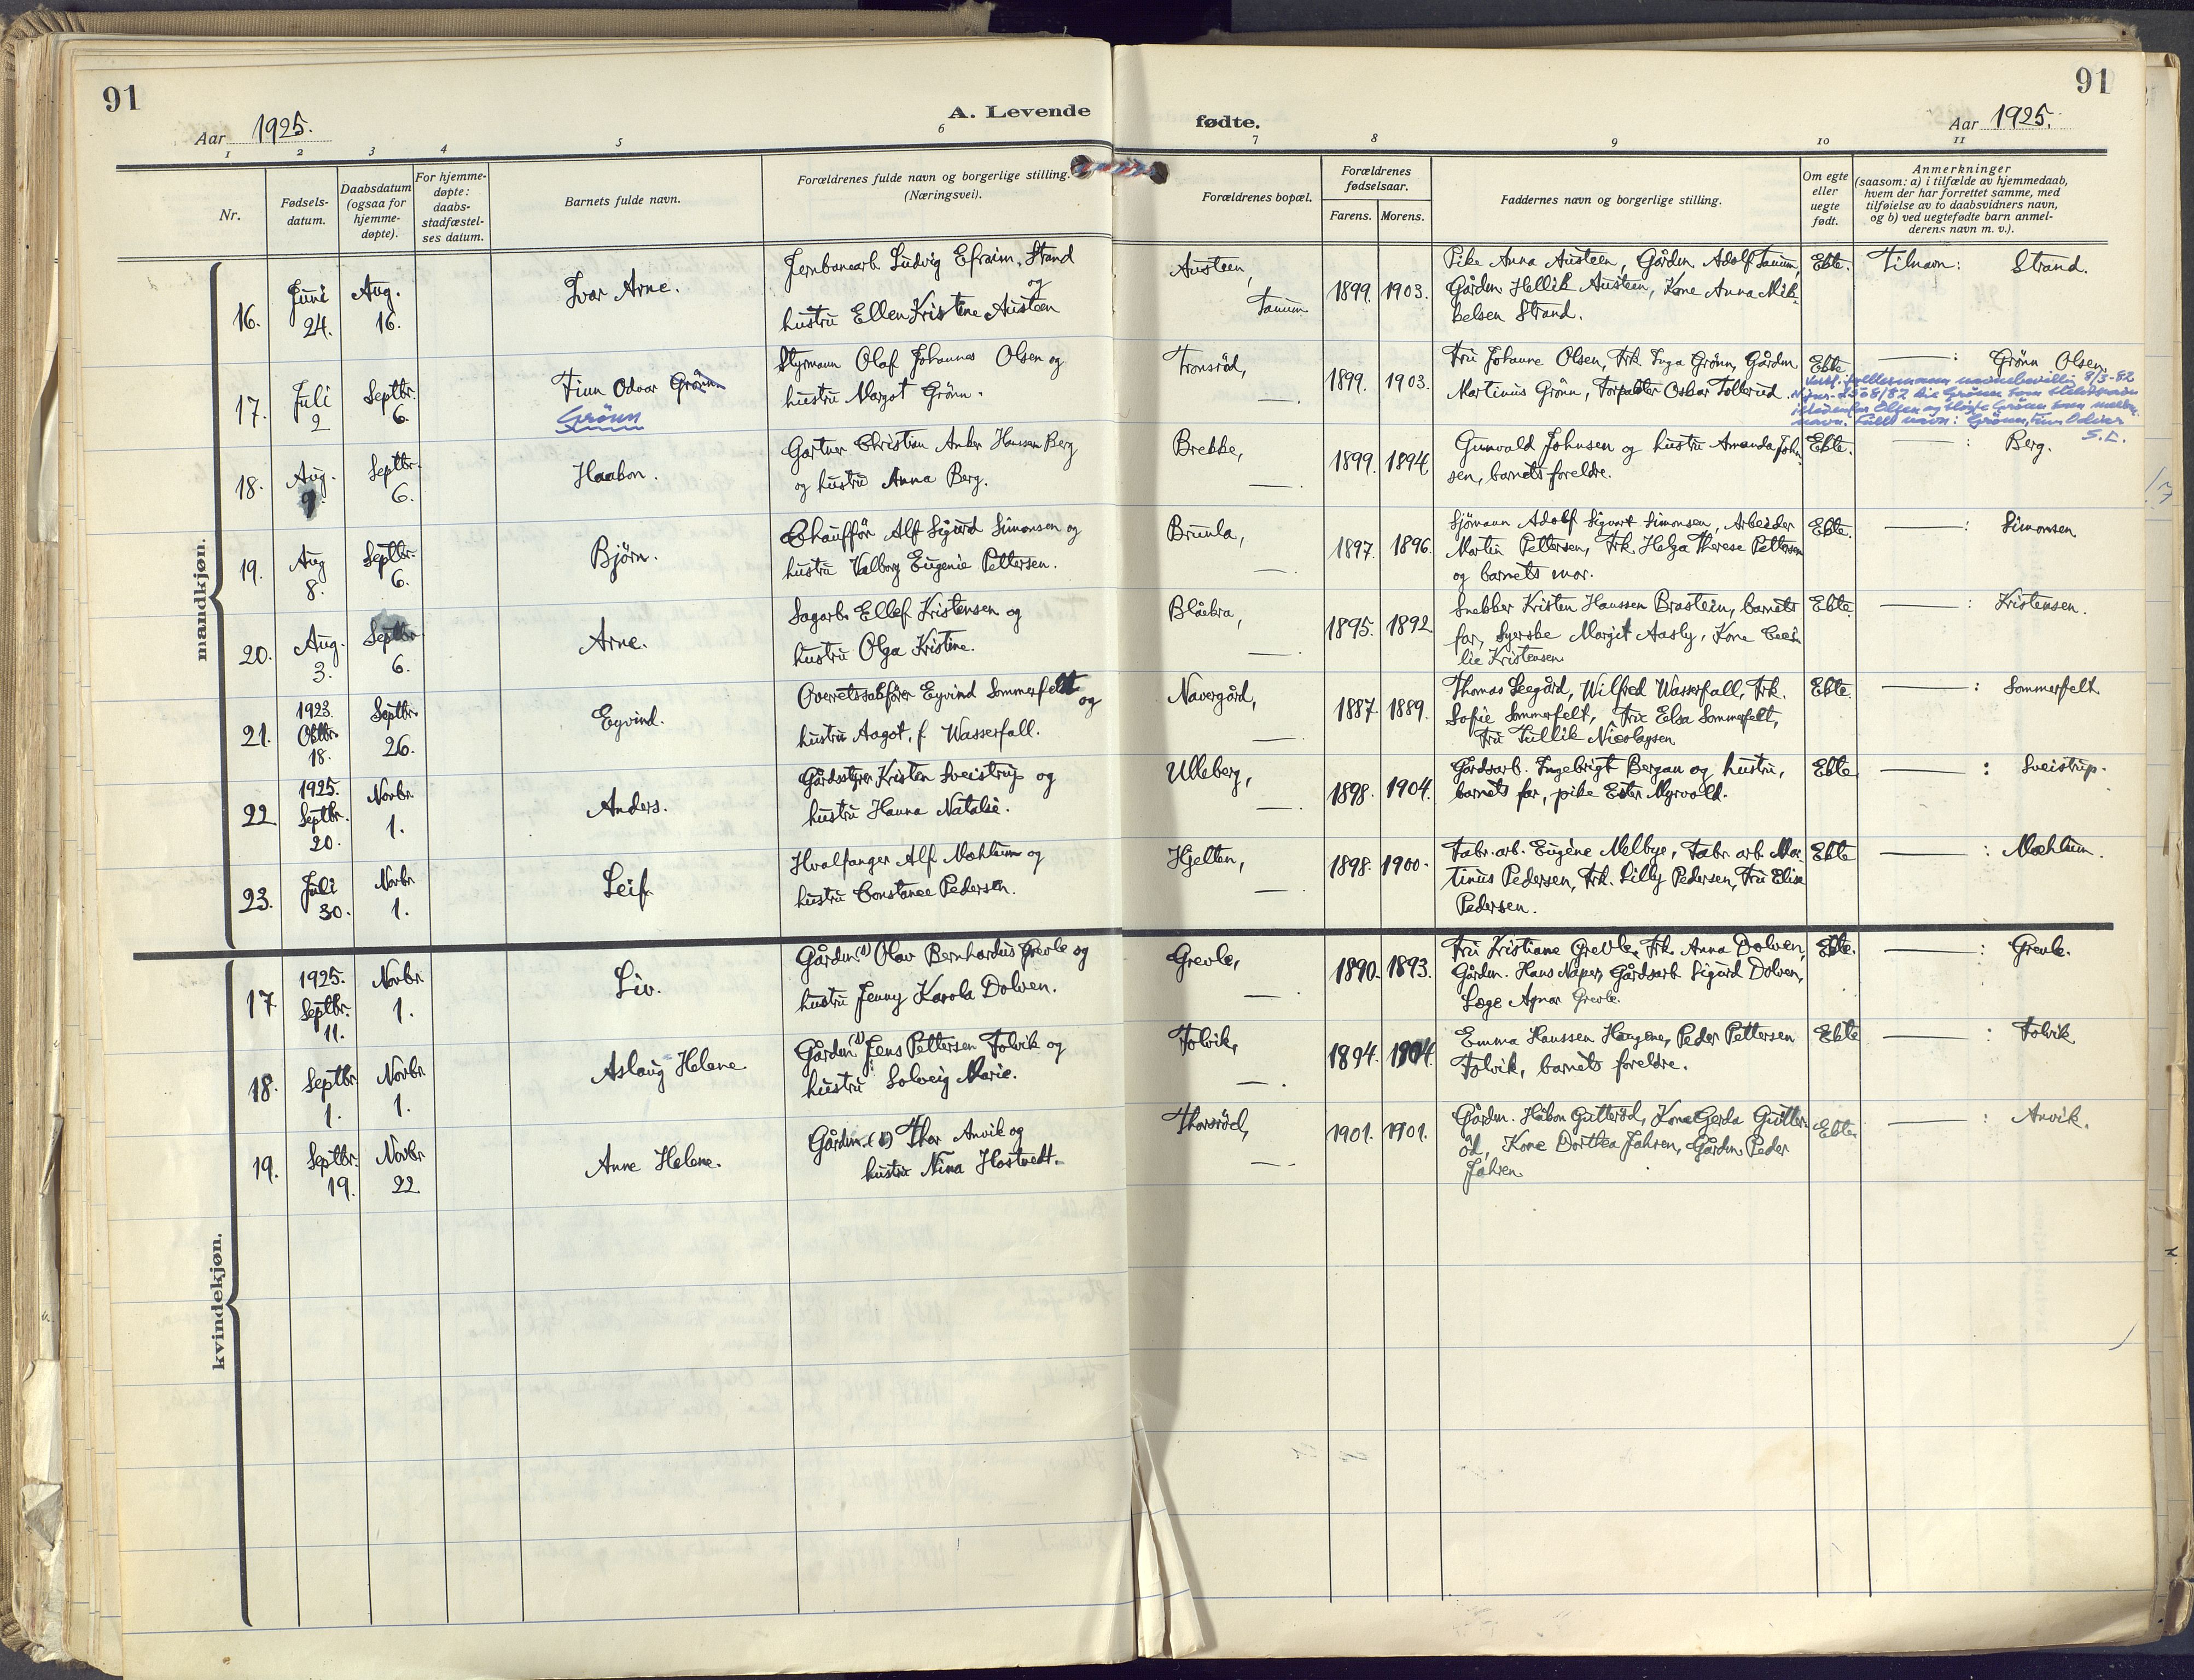 91
Aar 1925.
A. Levende
fødte.
Aar 1925.
91
1 2 3 4 5 6 7 8 9 10 11
Nr.
Fødsels-
datum.
Daabsdatum
(ogsaa for
hjemme-
døpte).
For hjemme-
døpte:
daabs-
stadfæstel-
ses datum.
Barnets fulde navn.
Forældrenes fulde navn og borgerlige stilling.
(Næringsvei).
Forældrenes bopæl.
Forældrenes
fødselsaar.
Farens. Morens.
Faddernes navn og borgerlige stilling.
Om egte
eller
uegte
født.
Anmerkninger
(saasom: a) i tilfælde av hjemmedaab,
hvem der har forrettet samme, med
tilføielse av to daabsvidners navn,
og b) ved uegtefødte barn anmel-
derens navn m. v.).
mandkjøn.
16.
Juni
24.
Aug.
16.
Ivar Arne.
Jernbanearb. Ludvig Efraim Strand
og
hustru Ellen Kristine Austeen
Austeen,
Tanum
1899. 1903.
Pike Anna Austeen, Gårdm. Adolf Tanum,
Gårdm. Hellik Austeen, Kone Anna Mik-
kelsen Strand.
Ekte.
Tilnavn: Strand.
17.
Juli
2
Septbr.
6.
Finn Odvar Grönn
Grönn
Styrmann Olaf Johannes Olsen og
hustru Margot Grönn.
Tronsröd,
—.
1899. 1903.
Fru Johanne Olsen, Frk. Inga Grönn, Gårdm
Martinus Grönn, Forpakter Oskar Tollerud.
Ekte
—: Grönn Olsen.
navnebevilln. 8/3-82
Grönn som
Olsen og Grönn som
navn. Fullt navn: Grönn, Finn Odvar
S.L.
18.
Aug.
9.
Septbr.
6.
Haakon.
Gartner Christian Anker Hansen Berg
og hustru Anna Berg.
Brekke,
—.
1899. 1894
Gunvald Johnsen og hustru Amanda John-
sen, barnets foreldre.
Ekte.
—: Berg.
19.
Aug
8.
Septbr.
6.
Björn.
Chauffför Alf Sigurd Simonsen og
hustru Valborg Eugenie Pettersen.
Brunla,
—.
1897. 1896.
Sjömann Adolf Sigvart Simonsen, Arbeider
Martin Pettersen, Frk. Helga Therese Pettersen
og barnets mor.
Ekte.
—: Simonsen
20.
Aug.
3.
Septbr
6.
Arne.
Sagarb. Ellef Kristensen og
hustru Olga Kristine.
Blåekra,
—.
1895. 1892
Snekker Kristen Hanssen Brastein, barnets
far, Syerske Margit Aasly, Kone Ceci-
lie Kristensen.
Ekte.
—: Kristensen.
21.
1923.
Oktbr.
18.
Septbr.
26.
Eyvind.
Overretssakförer Eyvind Sommerfelt
og
hustru Aagot, f. Wasserfall.
Navergård,
—.
1887. 1889.
Thomas Seegård, Wilfred Wasserfall, Frk.
Sofie Sommerfelt, Fru Elsa Sommerfelt,
Fru Tullik Nicolaysen
Ekte.
—: Sommerfelt.
22.
1925.
Septbr.
20.
Novbr.
1.
Anders.
Gårdsstyrer Kristen Sveistrup og
hustru Hanna Natalie.
Ulleberg,
—.
1898. 1904.
Gårdsarb. Ingebrigt Bergan og hustru,
barnets far, pike Ester Myrvold.
Ekte
—: Sveistrup.
23.
Juli
30.
Novbr
1.
Leif
Hvalfanger Alf Mæhlum og
hustru Constance Pedersen.
Hjelten,
—.
1898. 1900.
Fabr. arb. Eugène Melbye, Fabr. arb. Mar-
tinus Pedersen, Frk. Lilly Pedersen, Fru Elise
Pedersen.
Ekte
—: Mæhlum.
kvindekjøn.
17.
1925.
Septbr.
11.
Novbr
1.
Liv.
Gårdm(s) Olav Bernhardus Grevle og
hustru Jenny Karola Dolven.
Grevle,
—.
1890. 1893.
Fru Kristiane Grevle, Frk. Anna Dolven,
Gårdm. Hans Naper, Gårdsarb Sigurd Dolven,
Læge Agnar Grevle.
Ekte.
—: Grevle.
18.
Septbr
1.
Novbr
1.
Aslaug Helene
Gårdm(s) Jens Pettersen Folvik og
hustru Solveig Marie.
Folvik,
—.
1894. 1904.
Emma Hanssen Haugene, Peder Pettersen
Folvik, barnets foreldre.
Ekte
—: Folvik
19.
Septbr.
19.
Novbr
22
Anne Helene.
Gårdm.(s) Thor Anvik og
hustru Nina Hostvedt.
Thorsröd,
—.
1901. 1901.
Gårdm. Håkon Gutteröd, Kone Gerda Gutter-
öd, Kone Dorthea Jahren, Gårdm Peder
Jahren
Ekte.
—: Anvik.